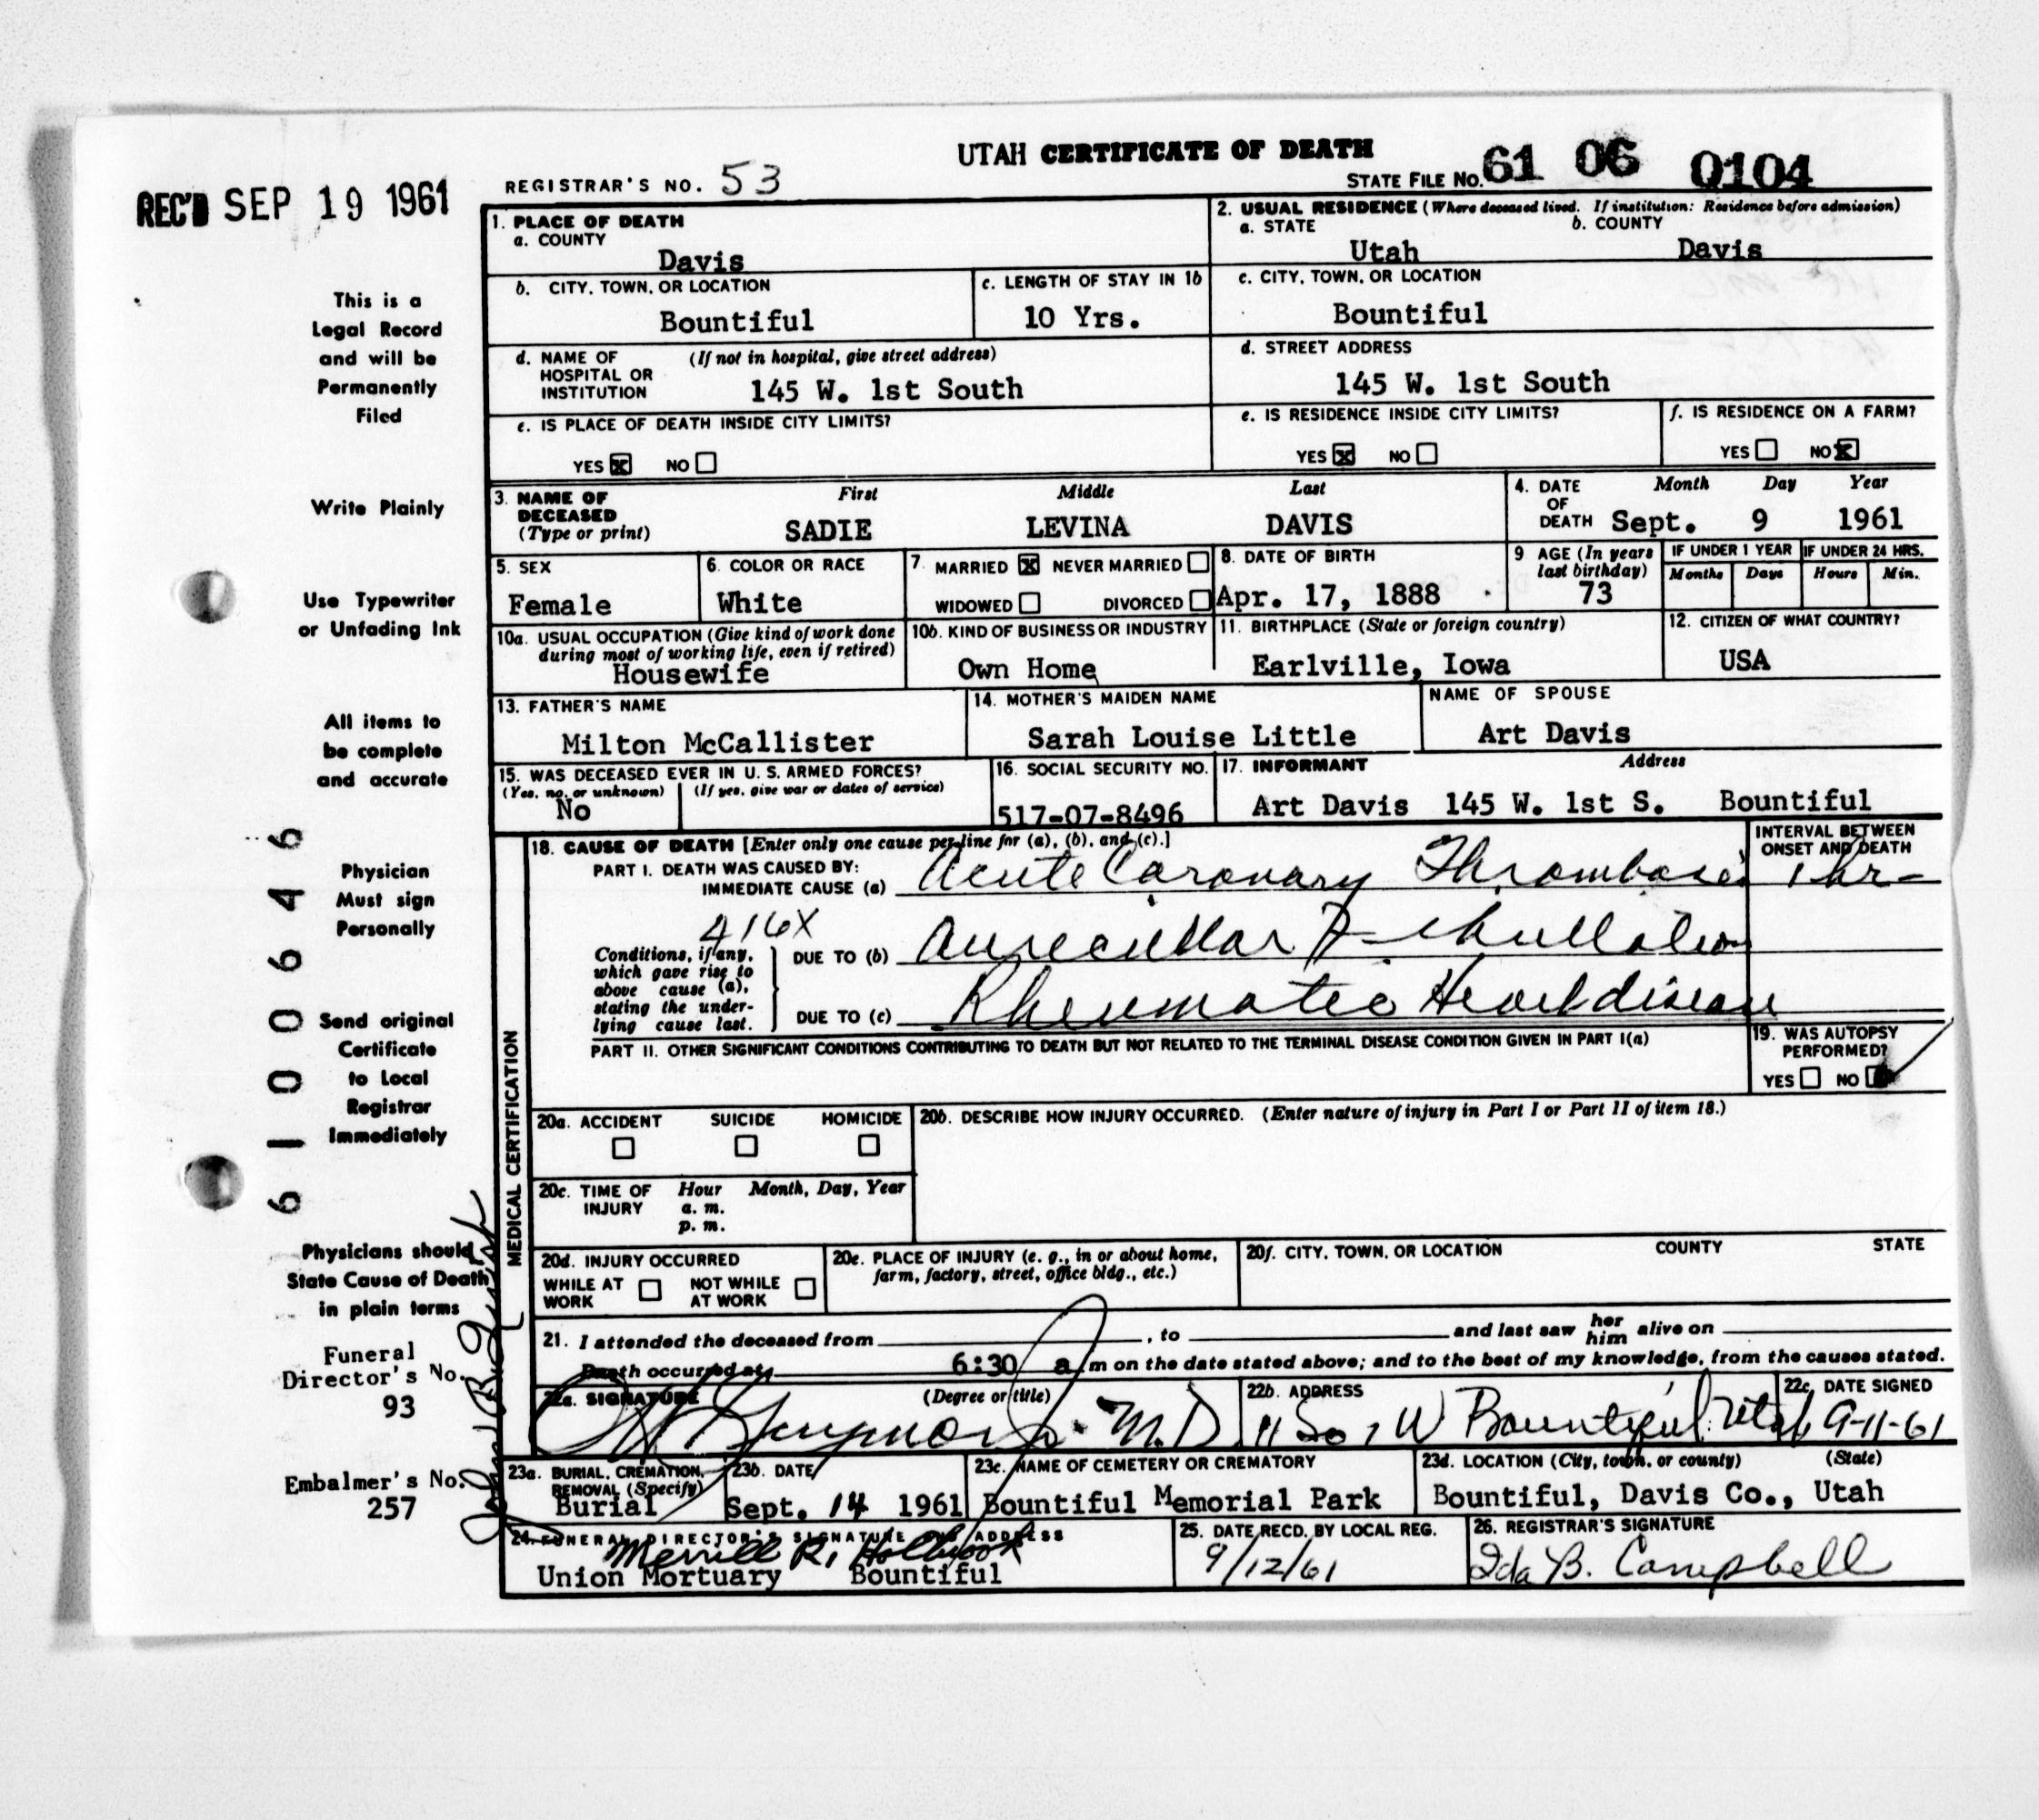 UTAH CERTIFICATE OF DEATH
REC'D SEP 19 1961
REGISTRAR'S NO. 53
STATE FILE NO. 61 06 0104
This is a
Legal Record
and will be
Permanently
Filed
Write Plainly
Use Typewriter
or Unfading Ink
All items to
be complete
and accurate
Physician
Must sign
Personally
Send original
Certificate
to Local
Registrar
Immediately
Physicians should
State Cause of Death
in plain terms
Funeral
Director's No.
93
Embalmer's No.
257
61006466
1. PLACE OF DEATH
a. COUNTY
Davis
2. USUAL RESIDENCE (Where deceased lived. If institution: Residence before admission)
a. STATE b. COUNTY
Utah Davis
b. CITY, TOWN, OR LOCATION
Bountiful
c. LENGTH OF STAY IN 1b
10 Yrs.
c. CITY, TOWN, OR LOCATION
Bountiful
d. NAME OF (If not in hospital, give street address)
HOSPITAL OR
INSTITUTION 145 W. 1st South
d. STREET ADDRESS
145 W. 1st South
e. IS PLACE OF DEATH INSIDE CITY LIMITS?
YES X NO
e. IS RESIDENCE INSIDE CITY LIMITS?
YES X NO
f. IS RESIDENCE ON A FARM?
YES NO X
3. NAME OF First Middle Last
DECEASED
(Type or print) SADIE LEVINA DAVIS
4. DATE Month Day Year
OF
DEATH Sept. 9 1961
5. SEX
Female
6. COLOR OR RACE
White
7. MARRIED X NEVER MARRIED
WIDOWED DIVORCED
8. DATE OF BIRTH
Apr. 17, 1888
9 AGE (In years
last birthday)
73
IF UNDER 1 YEAR
Months Days
IF UNDER 24 HRS.
Hours Min.
10a. USUAL OCCUPATION (Give kind of work done
during most of working life, even if retired)
Housewife
10b. KIND OF BUSINESS OR INDUSTRY
Own Home
11. BIRTHPLACE (State or foreign country)
Earlville, Iowa
12. CITIZEN OF WHAT COUNTRY?
USA
13. FATHER'S NAME
Milton McCallister
14. MOTHER'S MAIDEN NAME
Sarah Louise Little
NAME OF SPOUSE
Art Davis
15. WAS DECEASED EVER IN U. S. ARMED FORCES?
(Yes, no, or unknown) (If yes, give war or dates of service)
No
16. SOCIAL SECURITY NO.
517-07-8496
17. INFORMANT Address
Art Davis 145 W. 1st S. Bountiful
MEDICAL CERTIFICATION
18. CAUSE OF DEATH [Enter only one cause per line for (a), (b), and (c).]
PART I. DEATH WAS CAUSED BY:
IMMEDIATE CAUSE (a) Acute Coronary Thrombosis
INTERVAL BETWEEN
ONSET AND DEATH
1 hr-
416X
Conditions, if any,
which gave rise to
above cause (a),
stating the under-
lying cause last.
DUE TO (b) Auricular Fibrillation
DUE TO (c) Rheumatic Heart disease
PART II. OTHER SIGNIFICANT CONDITIONS CONTRIBUTING TO DEATH BUT NOT RELATED TO THE TERMINAL DISEASE CONDITION GIVEN IN PART I(a)
19. WAS AUTOPSY
PERFORMED?
YES NO
20a. ACCIDENT SUICIDE HOMICIDE
20b. DESCRIBE HOW INJURY OCCURRED. (Enter nature of injury in Part I or Part II of item 18.)
20c. TIME OF Hour Month, Day, Year
INJURY a. m.
p. m.
20d. INJURY OCCURRED
WHILE AT NOT WHILE
WORK AT WORK
20e. PLACE OF INJURY (e. g., in or about home,
farm, factory, street, office bldg., etc.)
20f. CITY, TOWN, OR LOCATION COUNTY STATE
21. I attended the deceased from , to and last saw her him alive on
Death occurred at 6:30 a m on the date stated above; and to the best of my knowledge, from the causes stated.
22a. SIGNATURE (Degree or title)
M.D.
22b. ADDRESS
11 So 1 W Bountiful Utah
22c. DATE SIGNED
9-11-61
23a. BURIAL, CREMATION,
REMOVAL (Specify)
Burial
23b. DATE
Sept. 14 1961
23c. NAME OF CEMETERY OR CREMATORY
Bountiful Memorial Park
23d. LOCATION (City, town, or county) (State)
Bountiful, Davis Co., Utah
24. FUNERAL DIRECTOR'S SIGNATURE AND ADDRESS
Merrill R. Holbrook
Union Mortuary Bountiful
25. DATE RECD. BY LOCAL REG.
9/12/61
26. REGISTRAR'S SIGNATURE
Ida B. Campbell